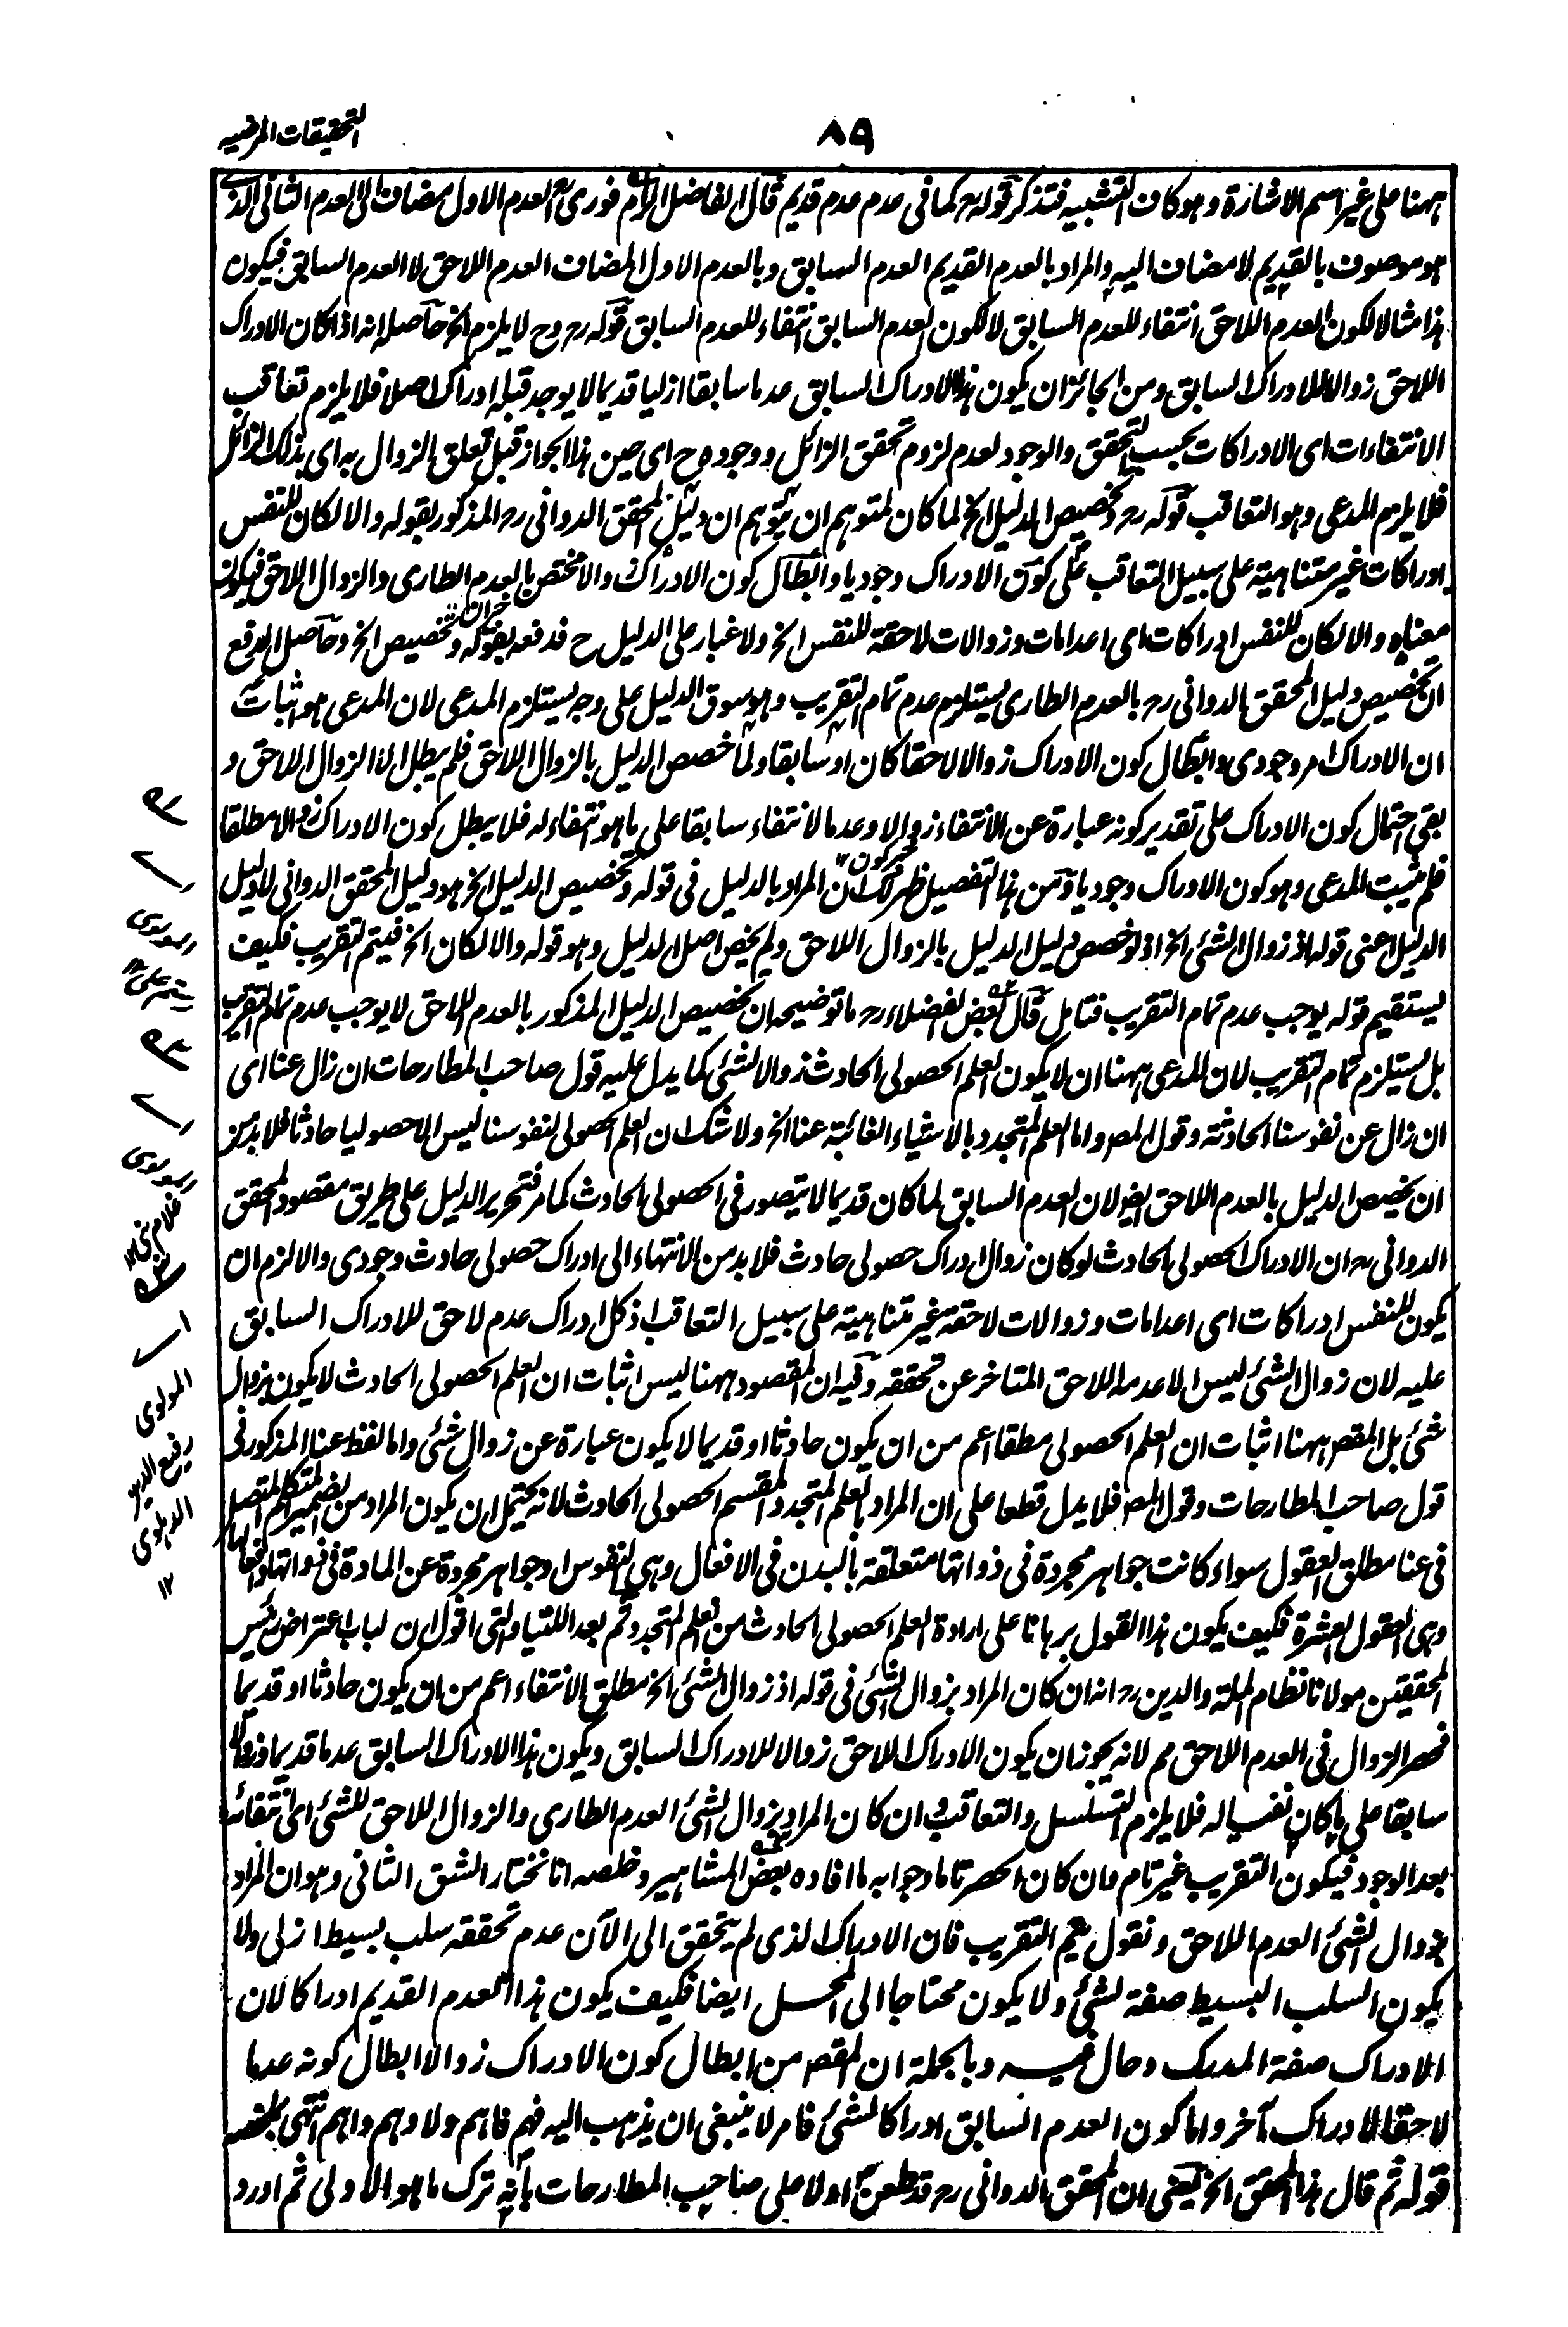 التحقيقات المرضيه
٨٩
ههنا على غير اسم الاشارة وهو كاف التشبيه فتذكر قوله رح كما فى عدم عدم قديم قال الفاضل الرام فورى رح العدم الاول مضاف الى العدم الثانى الذے
هو موصوف بالقديم لا مضاف اليه والمراد بالعدم القديم العدم السابق وبالعدم الاول المضاف العدم اللاحق لا العدم السابق فيكون
هذا مثالا لكون العدم اللاحق انتفاء للعدم السابق لا لكون العدم السابق انتفاء للعدم السابق قوله رح وح لا يلزم الخ حاصله انه اذا كان الادراك
اللاحق زوالا للادراك السابق ومن الجائز ان يكون هذا الادراك السابق عدما سابقا ازليا قديما لا يوجد قبله ادراك اصلا فلا يلزم تعاقب
الانتفاءات اى الادراكات بحسب التحقق والوجود لعدم لزوم تحقق الزائل ووجوده ح اى حين هذا الجواز قبل تعلق الزوال به اى بذلك الزائل
فلا يلزم المدعى وهو التعاقب قوله رح وتخصيص الدليل الخ لما كان لمتوهم ان يتوهم ان دليل المحقق الدوانى رح المذكور بقوله والا لكان للنفس
ادراكات غير متناهية على سبيل التعاقب على كون الادراك وجوديا وابطال كون الادراك والا مختص بالعدم الطارى والزوال اللاحق فيكون
معناه والا لكان للنفس ادراكات اى اعدامات وزوالات لاحقة للنفس الخ ولا غبار على الدليل ح فدفعه بقوله وتخصيص الخ وحاصل الدفع
ان تخصيص دليل المحقق الدوانى رح بالعدم الطارى يستلزم عدم تمام التقريب وهو سوق الدليل على وجه يستلزم المدعى لان المدعى هو اثبات
ان الادراك امر وجودى وابطال كون الادراك زوالا لاحقا كان او سابقا ولما خصص الدليل بالزوال اللاحق فلم يبطل الا الزوال اللاحق و
بقى احتمال كون الادراك على تقدير كونه عبارة عن الانتفاء زوالا وعدما لانتفاء سابقا على ما هو انتفاء له فلا يبطل كون الادراك زوالا مطلقا
فلم يثبت المدعى وهو كون الادراك وجوديا ومن هذا التفصيل ظهر لك ان المراد بالدليل فى قوله وتخصيص الدليل الخ هو دليل المحقق الدوانى لا دليل
خبر كون ١٢
الدليل اعنى قوله اذ زوال الشئ الخ اذ لو خصص دليل الدليل بالزوال اللاحق ولم يخص اصل الدليل وهو قوله والا لكان الخ فيتم التقريب فكيف
يستقيم قوله يوجب عدم تمام التقريب فتامل قال بعض الفضلاء رح ما توضيحه ان تخصيص الدليل المذكور بالعدم اللاحق لا يوجب عدم تمام التقريب
بل يستلزم تمام التقريب لان المدعى ههنا ان لا يكون العلم الحصولى الحادث زوالا لشئ كما يدل عليه قول صاحب المطارحات ان زال عنا اى
ان زال عن نفوسنا الحادثة وقول المص واما العلم المتجدد بالاشياء الغائبة عنا الخ ولا شك ان العلم الحصولى لنفوسنا ليس الا حصوليا حادثا فلا بد من
ان يخصص الدليل بالعدم اللاحق ايضا ولان العدم السابق لما كان قديما لا يتصور فى الحصولى الحادث كما مر فتحرير الدليل على طريق مقصود المحقق
الدوانى رح ان الادراك الحصولى الحادث لو كان زوال ادراك حصولى حادث فلا بد من الانتهاء الى ادراك حصولى حادث وجودى والا لزم ان
يكون للنفس ادراكات اى اعدامات وزوالات لاحقة غير متناهية على سبيل التعاقب اذ كل ادراك عدم لاحق للادراك السابق
عليه لان زوال الشئ ليس الا عدمه اللاحق المتاخر عن تحققه وفيه ان المقصود ههنا ليس اثبات ان العلم الحصولى الحادث لا يكون بزوال
شئ بل المقص ههنا اثبات ان العلم الحصولى مطلقا اعم من ان يكون حادثا او قديما لا يكون عبارة عن زوال شئ واما لفظ عنا المذكور فى
قول صاحب المطارحات وقول المص فلا يدل قطعا على ان المراد بالعلم المتجدد المقسم الحصولى الحادث لانه يحتمل ان يكون المراد من ضمير المتكلم المتصل
فى عنا مطلق العقول سواء كانت جواهر مجردة فى ذواتها متعلقة بالبدن فى الافعال وهى النفوس او جواهر مجردة عن المادة فى ذواتها وافعالها
وهى العقول العشرة فكيف يكون هذا القول برهانا على ارادة العلم الحصولى الحادث من العلم المتجدد ثم بعد اللتيا والتى اقول ان لباب اعتراض رئيس
المحققين مولانا نظام الملة والدين رح انه ان كان المراد بزوال الشئ فى قوله اذ زوال الشئ الخ مطلق الانتفاء اعم من ان يكون حادثا او قديما
فحصر الزوال فى العدم اللاحق مم لانه يجوز ان يكون الادراك اللاحق زوالا للادراك السابق ويكون هذا الادراك السابق عدما قديما وزوالا
سابقا على ما كان نفيا له فلا يلزم التسلسل والتعاقب وان كان المراد بزوال الشئ العدم الطارى والزوال اللاحق للشئ اى انتفائه
بعد الوجود فيكون التقريب غير تام وان كان الحصر تاما وجوابه ما افاده بعض المشاهير وخلصه انا نختار الشق الثانى وهو ان المراد
بزوال الشئ العدم اللاحق ونقول يتم التقريب فان الادراك الذى لم يتحقق الى الآن عدم تحققه سلب بسيط ازلى ولا
يكون السلب البسيط صفة لشئ ولا يكون محتاجا الى المحل ايضا فكيف يكون هذا العدم القديم ادراكا لان
الادراك صفة المدرك وحال فيه وبالجملة ان المقص من ابطال كون الادراك زوالا ابطال كونه عدما
لاحقا لادراك آخر واما كون العدم السابق ادراكا لشئ فامر لا ينبغى ان يذهب اليه فهم فاهم ولا وهم واهم انتهى بلخصه
قوله ثم قال هذا المحقق الخ يعنى ان المحقق الدوانى رح قد طعن اولا على صاحب المطارحات بانه ترك ما هو الاولى ثم اورد
المولوى
رفيع الدين
الدهلوى
١٢